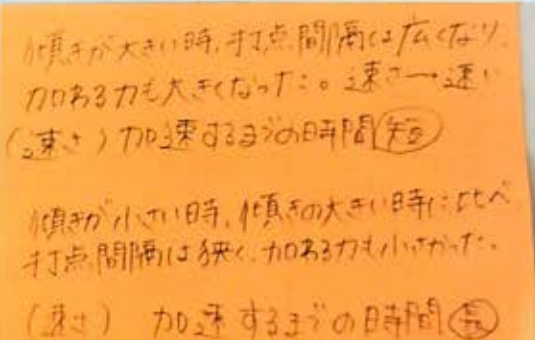 傾きが大きい時、打点間隔は広くなり、
加わる力も大きくなった。速さ→速い
(速さ) 加速するまでの時間 短
傾きが小さい時、傾きの大きい時に比べ
打点間隔は狭く、加わる力も小さかった。
(速さ) 加速するまでの時間 長